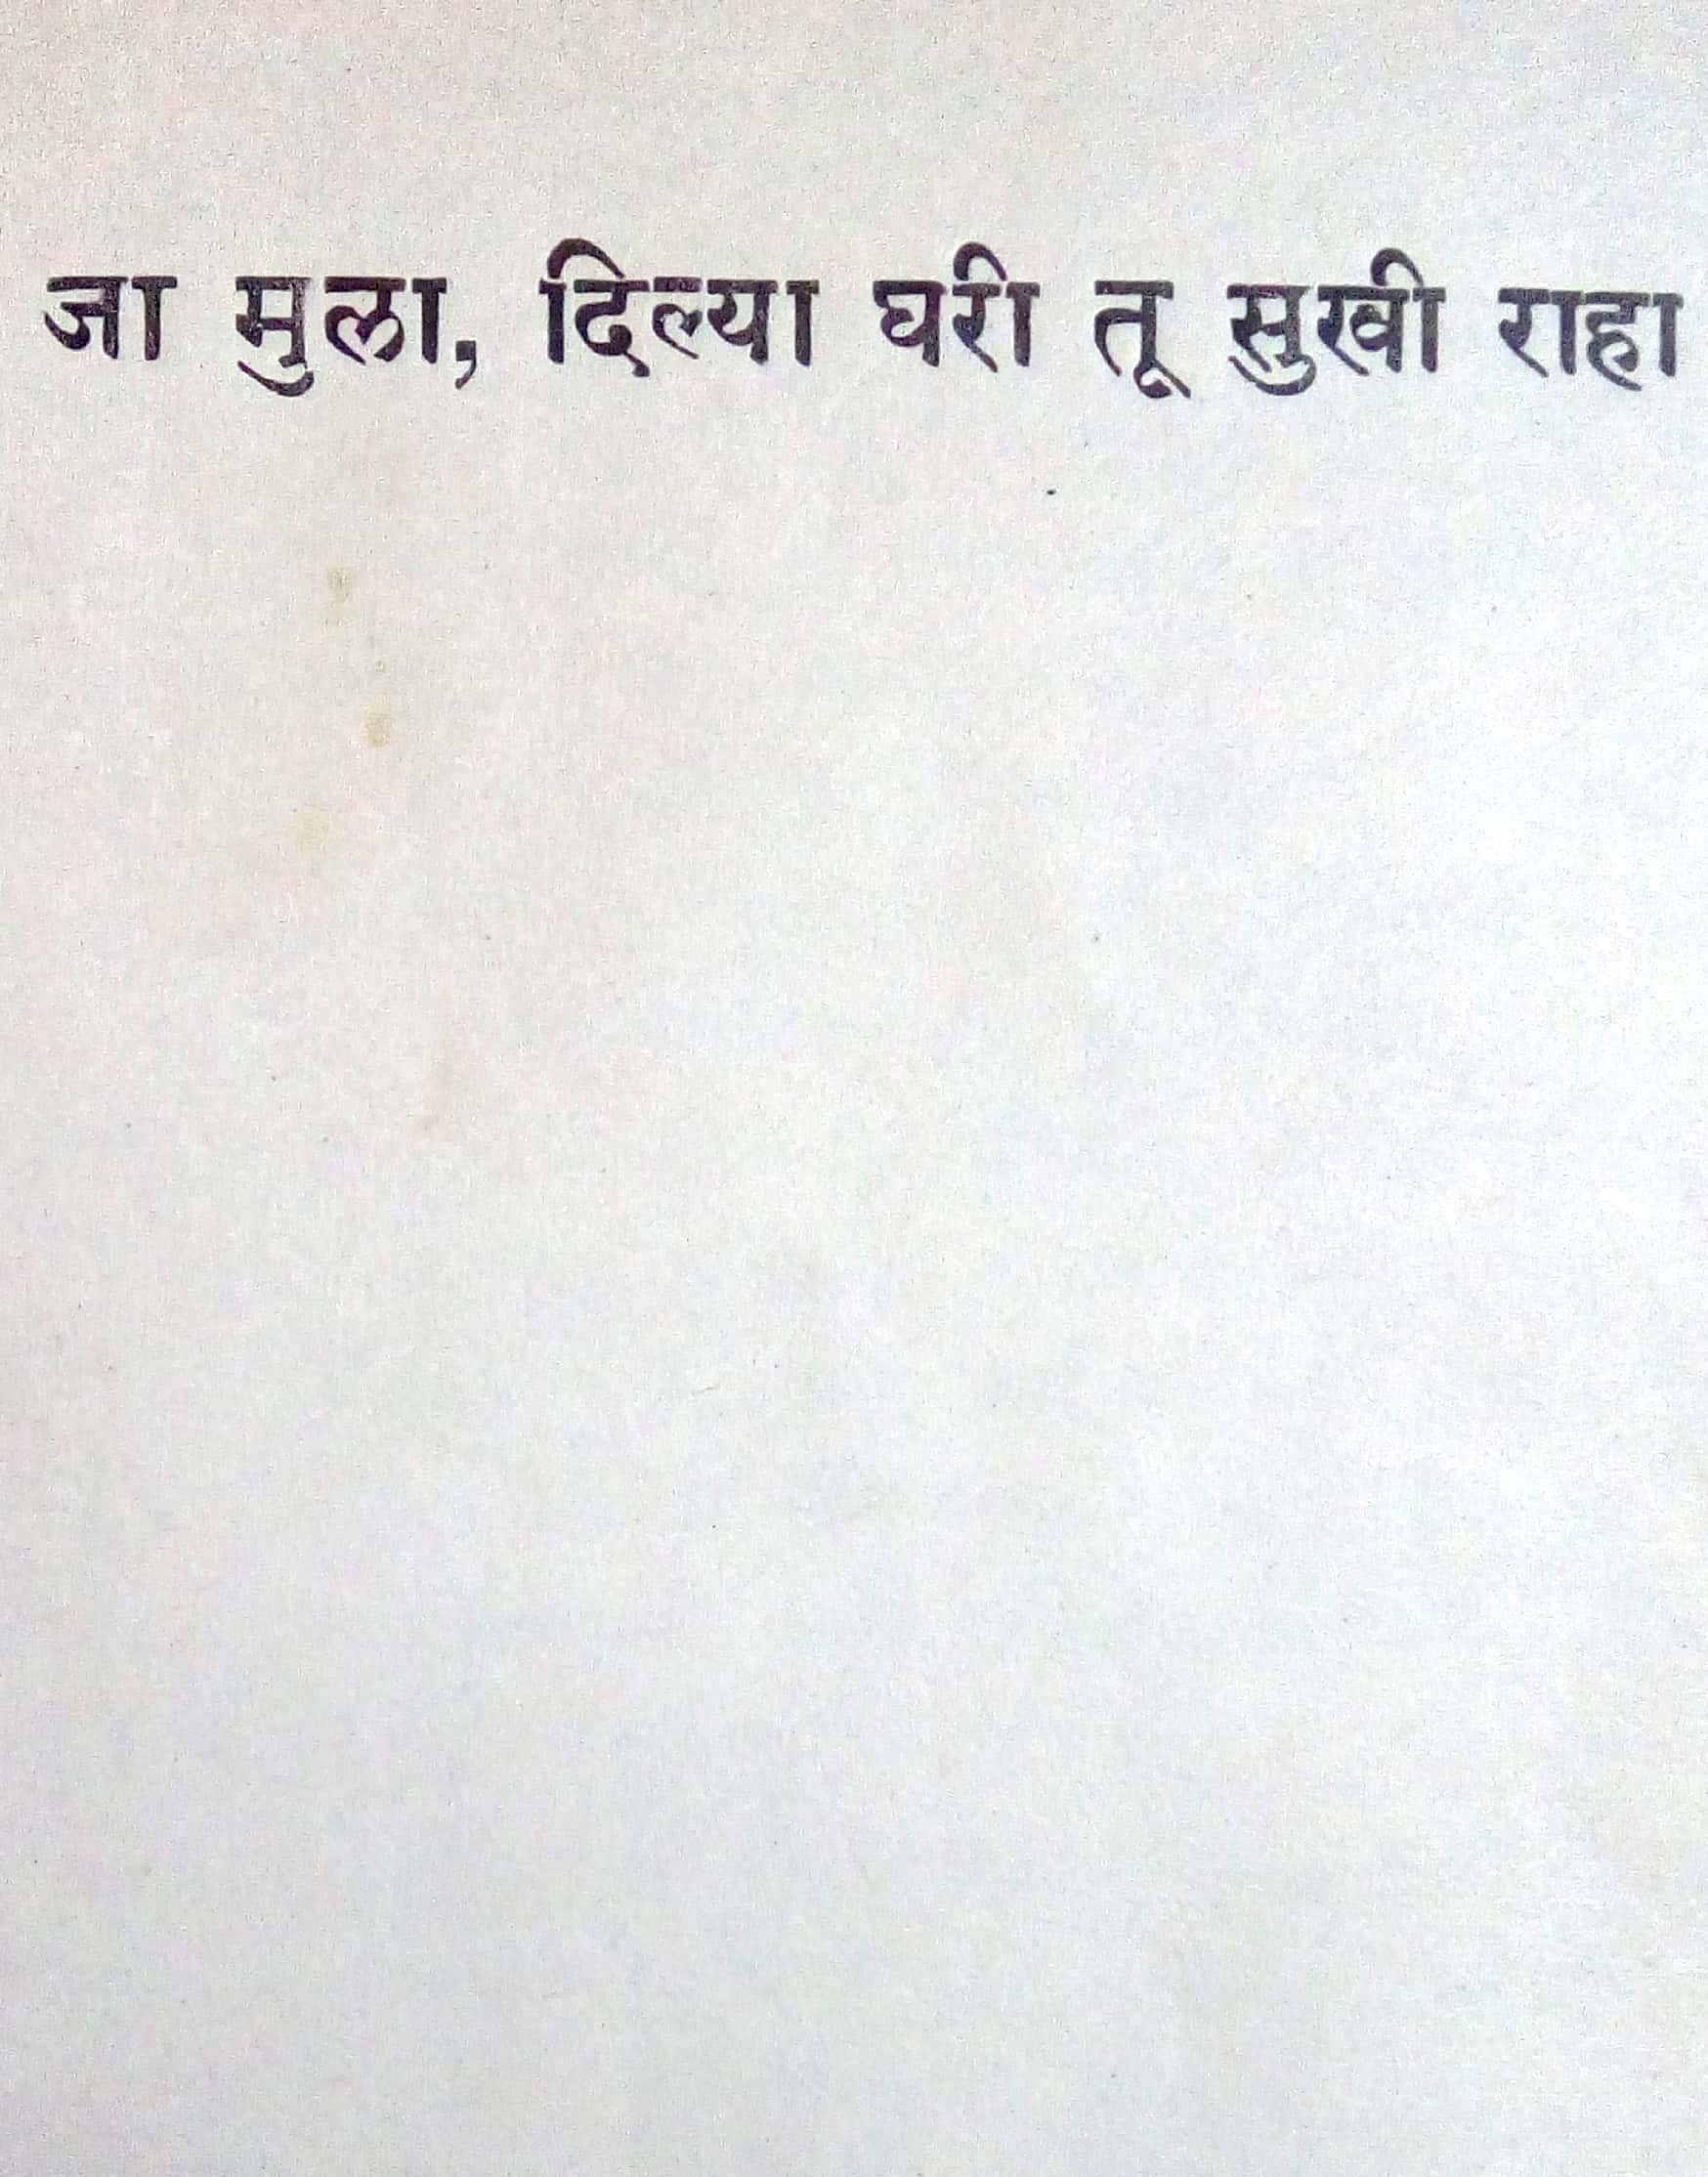 जा मुला, दिल्या घरी तू सुखी राहा